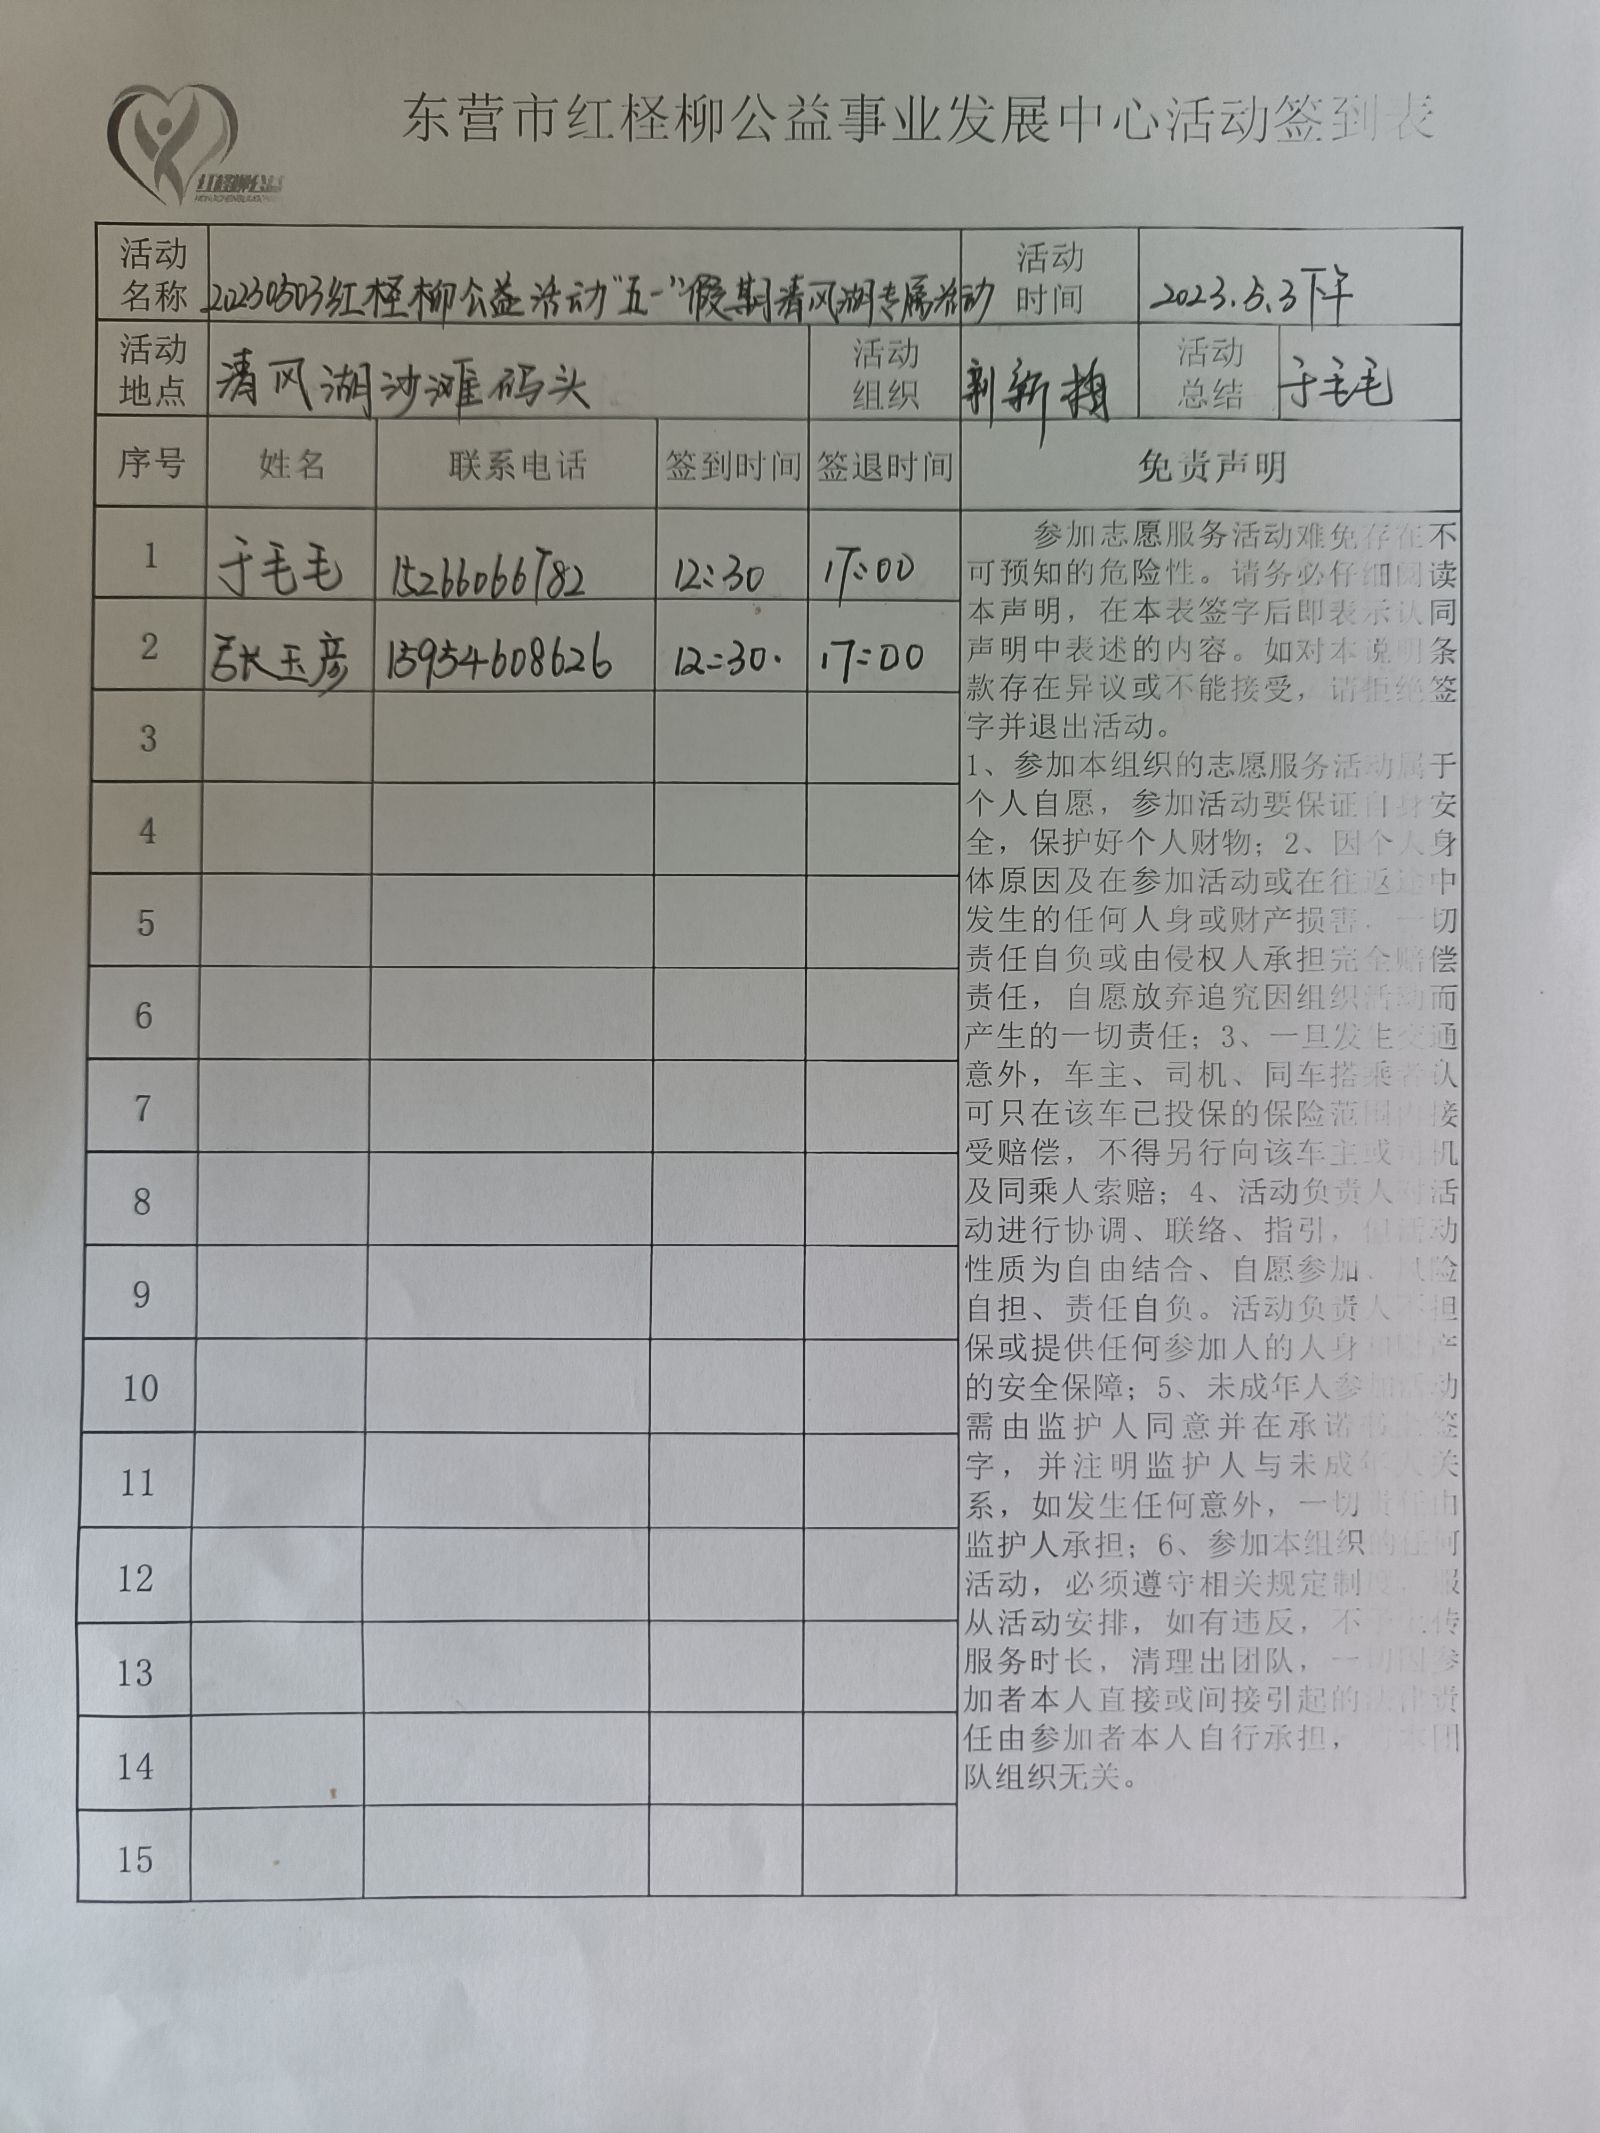 东营市红柽柳公益事业发展中心活动签到表
红柽柳公益
活动名称 20230503红柽柳公益活动"五一"假期清风湖专属活动 活动时间 2023.5.3下午
活动地点 清风湖沙滩码头 活动组织 新 活动总结 于毛毛
序号 姓名 联系电话 签到时间 签退时间 免责声明
1 于毛毛 15266066782 12:30 17:00
2 张玉彦 15954608626 12:30. 17:00
3
4
5
6
7
8
9
10
11
12
13
14
15
参加志愿服务活动难免存在不
可预知的危险性。请务必仔细阅读
本声明，在本表签字后即表示认同
声明中表述的内容。如对本说明条
款存在异议或不能接受，请拒绝签
字并退出活动。
1、参加本组织的志愿服务活动属于
个人自愿，参加活动要保证自身安
全，保护好个人财物；2、因个人身
体原因及在参加活动或在往返途中
发生的任何人身或财产损害，一切
责任自负或由侵权人承担完全赔偿
责任，自愿放弃追究因组织活动而
产生的一切责任；3、一旦发生交通
意外，车主、司机、同车搭乘者认
可只在该车已投保的保险范围内接
受赔偿，不得另行向该车主或司机
及同乘人索赔；4、活动负责人对活
动进行协调、联络、指引，但活动
性质为自由结合、自愿参加、风险
自担、责任自负。活动负责人不担
保或提供任何参加人的人身和财产
的安全保障；5、未成年人参加活动
需由监护人同意并在承诺书上签
字，并注明监护人与未成年人关
系，如发生任何意外，一切责任由
监护人承担；6、参加本组织的任何
活动，必须遵守相关规定制度，服
从活动安排，如有违反，不予上传
服务时长，清理出团队，一切因参
加者本人直接或间接引起的法律责
任由参加者本人自行承担，与本团
队组织无关。